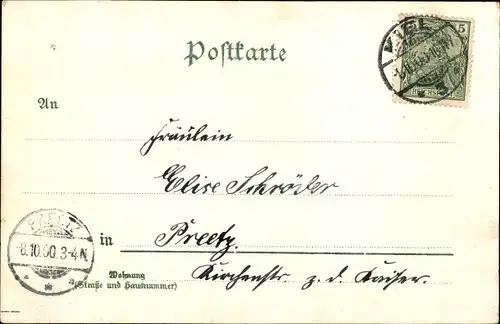 Postkarte
KIEL
5
An
Fräulein
Elise Schröder
PREETZ
8.10.00.3-4N
in Preetz.
Wohnung
(Straße und Hausnummer)
Kirchenstr. z. d. Kaiser.